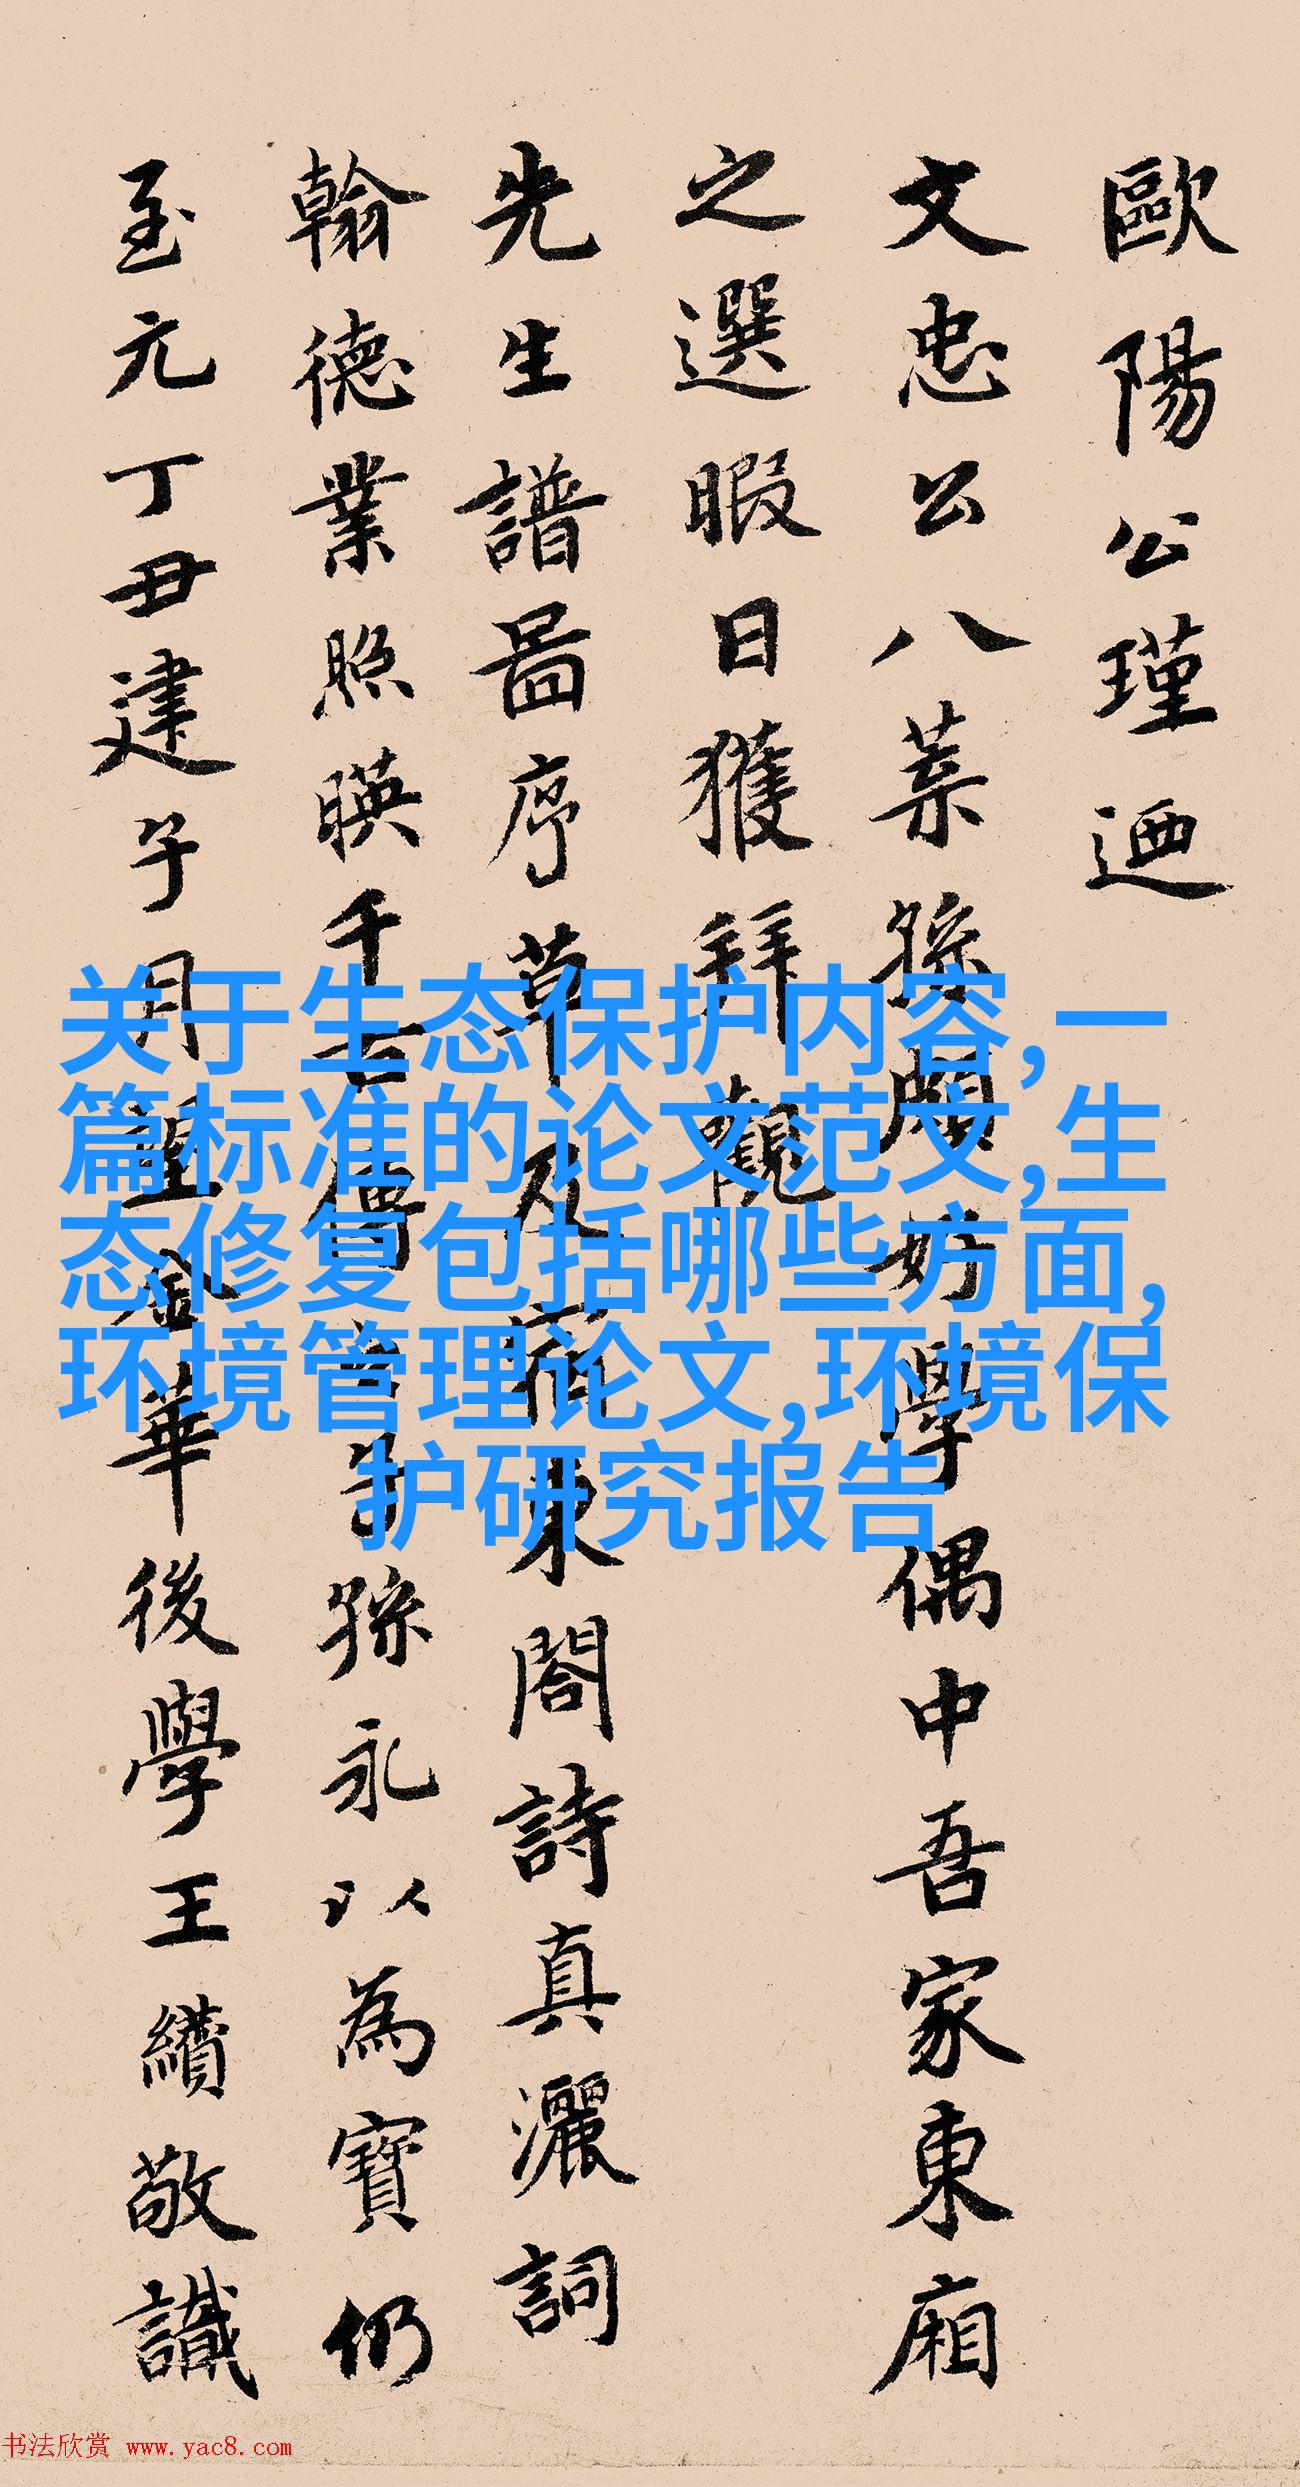 歐陽公瑾迺
文忠公八葉孫頗好學偶中吾家東廂
之選暇日獲拜觀
先生譜圖序草及府東閤詩真灑詞
翰德業照暎千古傳之子孫永以為寶仍
至元丁丑建子月望金華後學王績敬識
关于生态保护内容,一
篇标准的论文范文,生
态修复包括哪些方面,
环境管理论文,环境保
护研究报告
书法欣赏 www.yac8.com